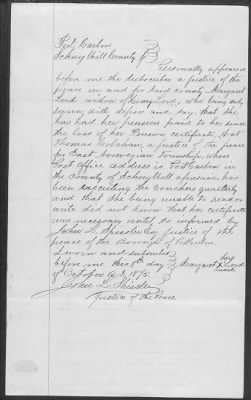 Port Carbon
Schuylkill County
Personally appeared
before me the subscriber a justice of the
peace in and for said county Margaret
Lord widow of Lord, who being duly
sworn doth depose and say that she
has had her pension paid to her since
the loss of her Pension certificate, that
Thomas Colahan, a justice of the peace
for East Norwegian Township, whose
Post Office address is Port Carbon in
the County of Schuylkill aforesaid, has
been executing the vouchers quarterly
and that she being unable to read or
write did not know that her certificate
was necessary until so informed by
John L. Shisler Esq justice of the
peace of the Borough of
Sworn and subscribed
before me this 8th day Margaret X Lord
her
mark
of October A.D. 1875.
John L. Shisler
Justice of the Peace